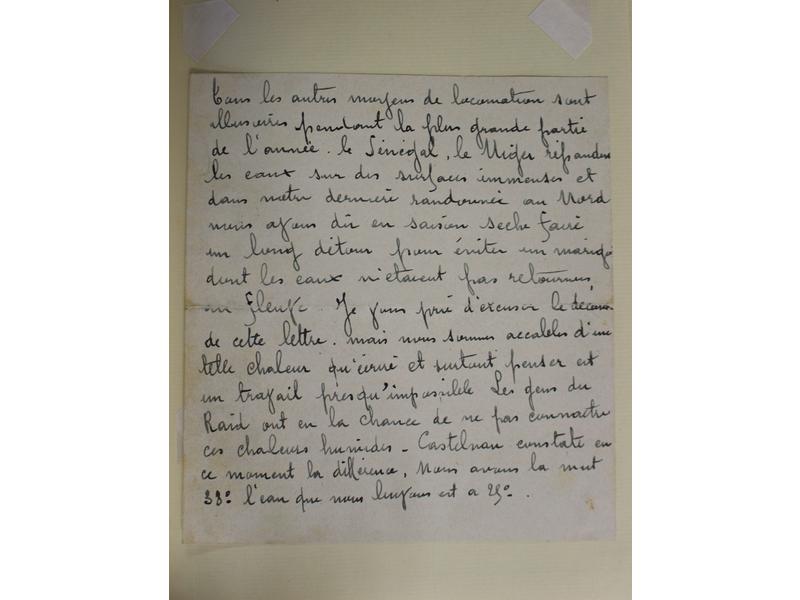 Tous les autres moyens de locomotion sont
illusoires pendant la plus grande partie
de l'année. le Sénégal, le Niger répandent
les eaux sur des surfaces immenses et
dans notre dernière randonnée au Nord
nous avons dû en saison seche faire
un long détour pour éviter un marigot
dont les eaux n'étaient pas retournées
au fleuve. Je vous prie d'excuser le décousu
de cette lettre. mais nous sommes accablés d'une
telle chaleur qu'écrire et surtout penser est
un travail presqu'impossible Les gens du
Raid ont eu la chance de ne pas connaitre
ces chaleurs humides - Castelnau constate en
ce moment la différence, Nous avons la nuit
33° l'eau que nous buvons est a 29°.